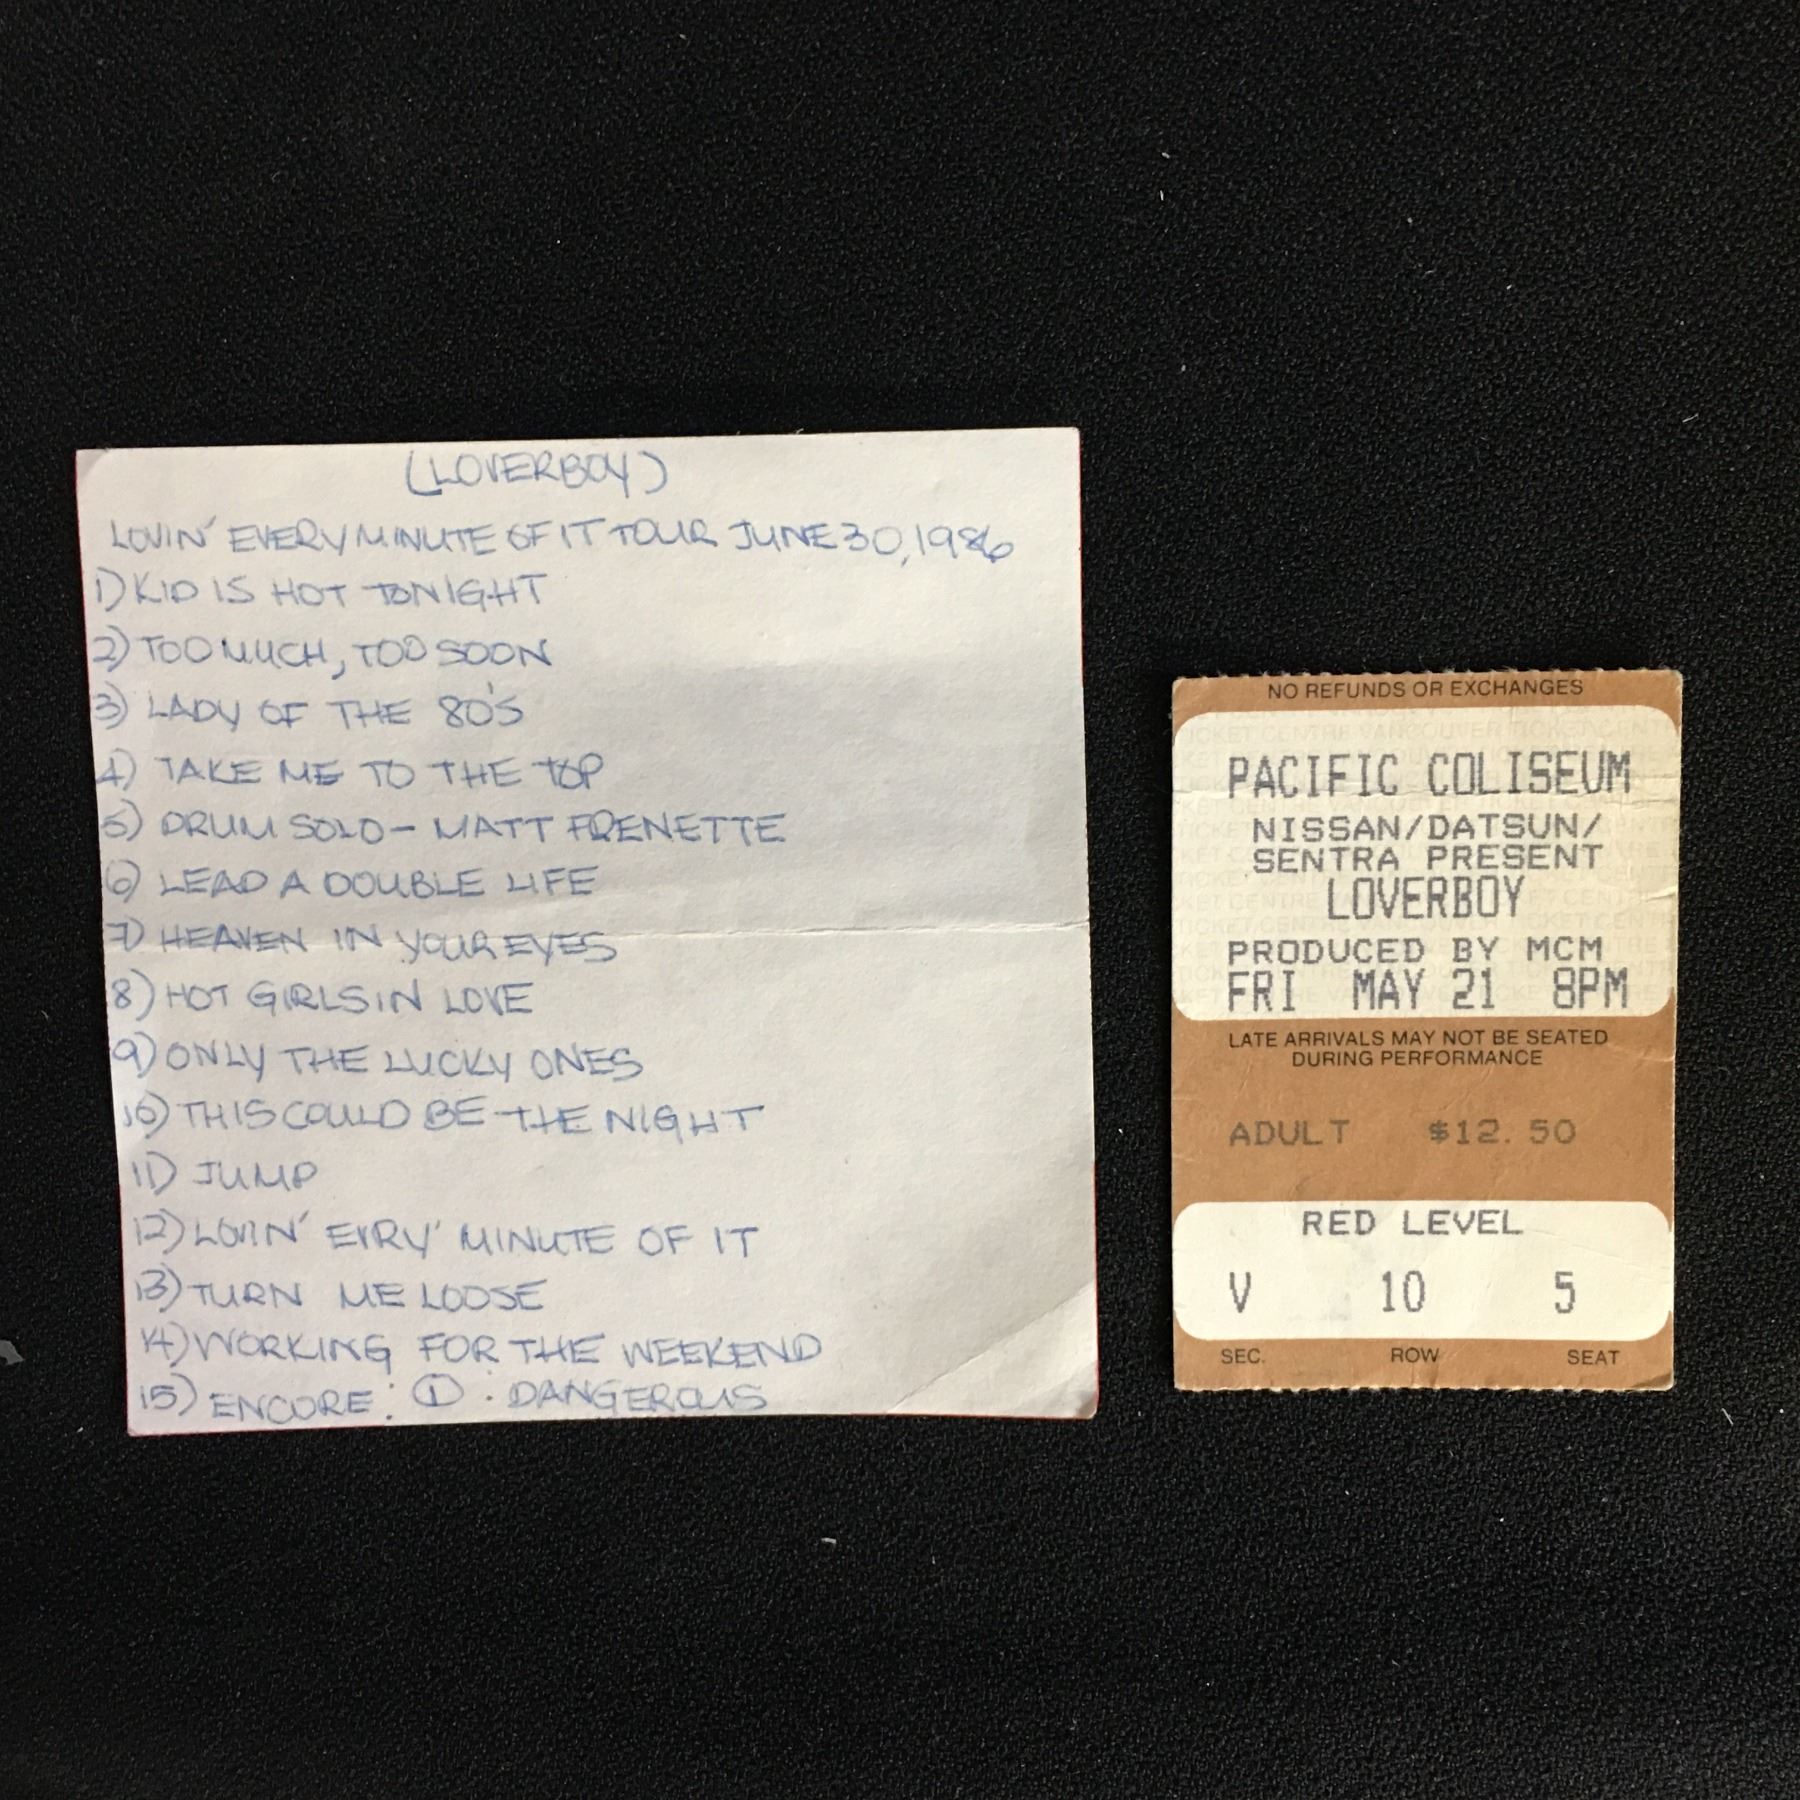 (LOVERBOY)
LOVIN' EVERY MINUTE OF IT TOUR JUNE 30, 1986
1) KID IS HOT TONIGHT
2) TOO MUCH, TOO SOON
3) LADY OF THE 80'S
4) TAKE ME TO THE TOP
5) DRUM SOLO - MATT FRENETTE
6) LEAD A DOUBLE LIFE
7) HEAVEN IN YOUR EYES
8) HOT GIRLS IN LOVE
9) ONLY THE LUCKY ONES
10) THIS COULD BE THE NIGHT
11) JUMP
12) LOVIN' EVRY' MINUTE OF IT
13) TURN ME LOOSE
14) WORKING FOR THE WEEKEND
15) ENCORE: ① : DANGEROUS
NO REFUNDS OR EXCHANGES
PACIFIC COLISEUM
NISSAN/DATSUN/
SENTRA PRESENT
LOVERBOY
PRODUCED BY MCM
FRI MAY 21 8PM
LATE ARRIVALS MAY NOT BE SEATED
DURING PERFORMANCE
ADULT $12.50
RED LEVEL
V 10 5
SEC. ROW SEAT